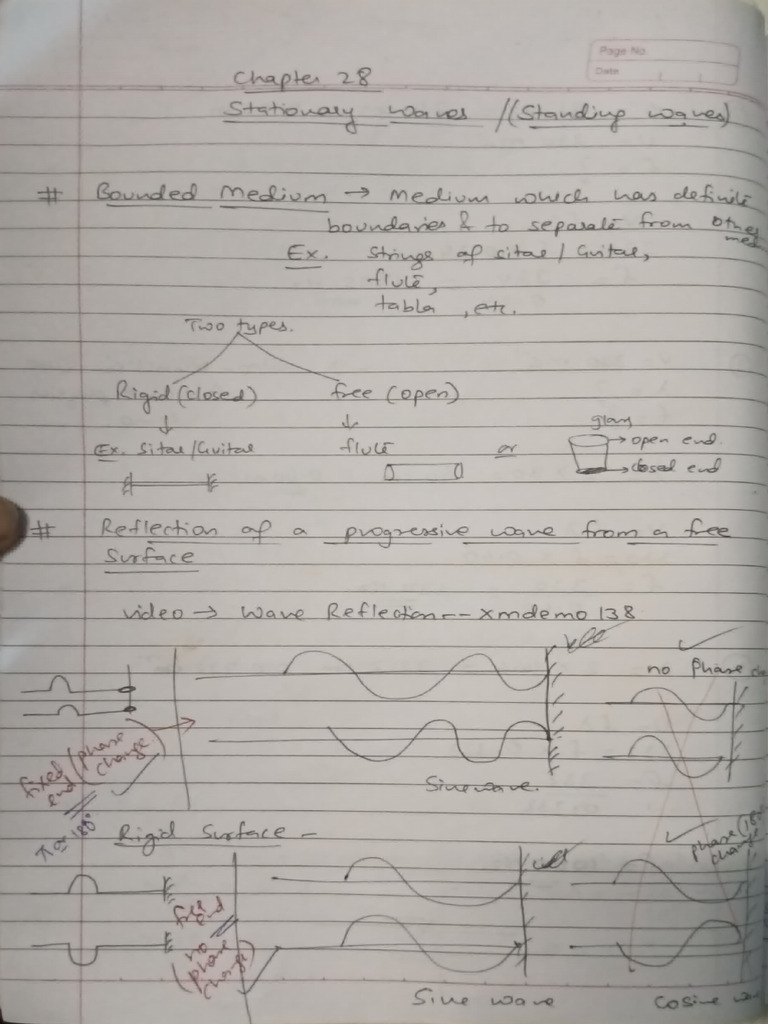 Page No.
Date
Chapter 28
Stationary waves /(Standing waves)
# Bounded Medium → Medium which has definite
boundaries & to separate from other
med
Ex. Strings of sitar / Guitar,
flute,
tabla, etc.
Two types.
Rigid (closed) free (open)
Ex. Sitar/Guitar flute or glass
→ open end
→ closed end
# Reflection of a progressive wave from a free
Surface
video → Wave Reflection -- xmdemo 138
no Phase
fixed end (phase change)
π or 180°
Sine wave.
Rigid Surface -
phase (18
change
free end
no (phase change)
Sine wave Cosine wa